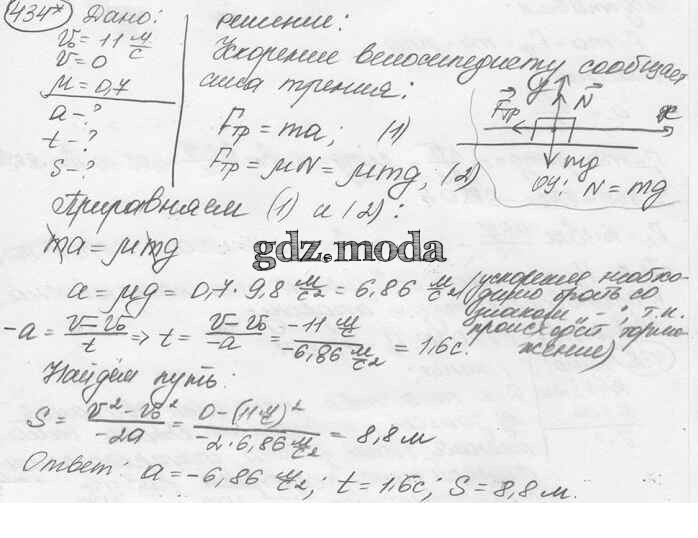 434* Дано:
v₀ = 11 м/с
v = 0
μ = 0,7
a - ?
t - ?
S - ?
решение:
Ускорение велосипедисту сообщает
сила трения:
Fтр = ma; (1)
Fтр = μN = μmg, (2)
y
N
Fтр
x
mg
OY: N = mg
Приравняем (1) и (2):
ma = μmg
gdz.moda
a = μg = 0,7 · 9,8 м/с² = 6,86 м/с² (ускорение необхо-
димо брать со
знаком „-", т.к.
происходит тормо-
жение)
-a = (v - v₀)/t => t = (v - v₀)/-a = (-11 м/с)/(-6,86 м/с²) = 1,6с.
Найдём путь:
S = (v² - v₀²)/-2a = (0 - (11 м/с)²)/(-2 · 6,86 м/с²) = 8,8 м
Ответ: a = -6,86 м/с²; t = 1,6с; S = 8,8 м.